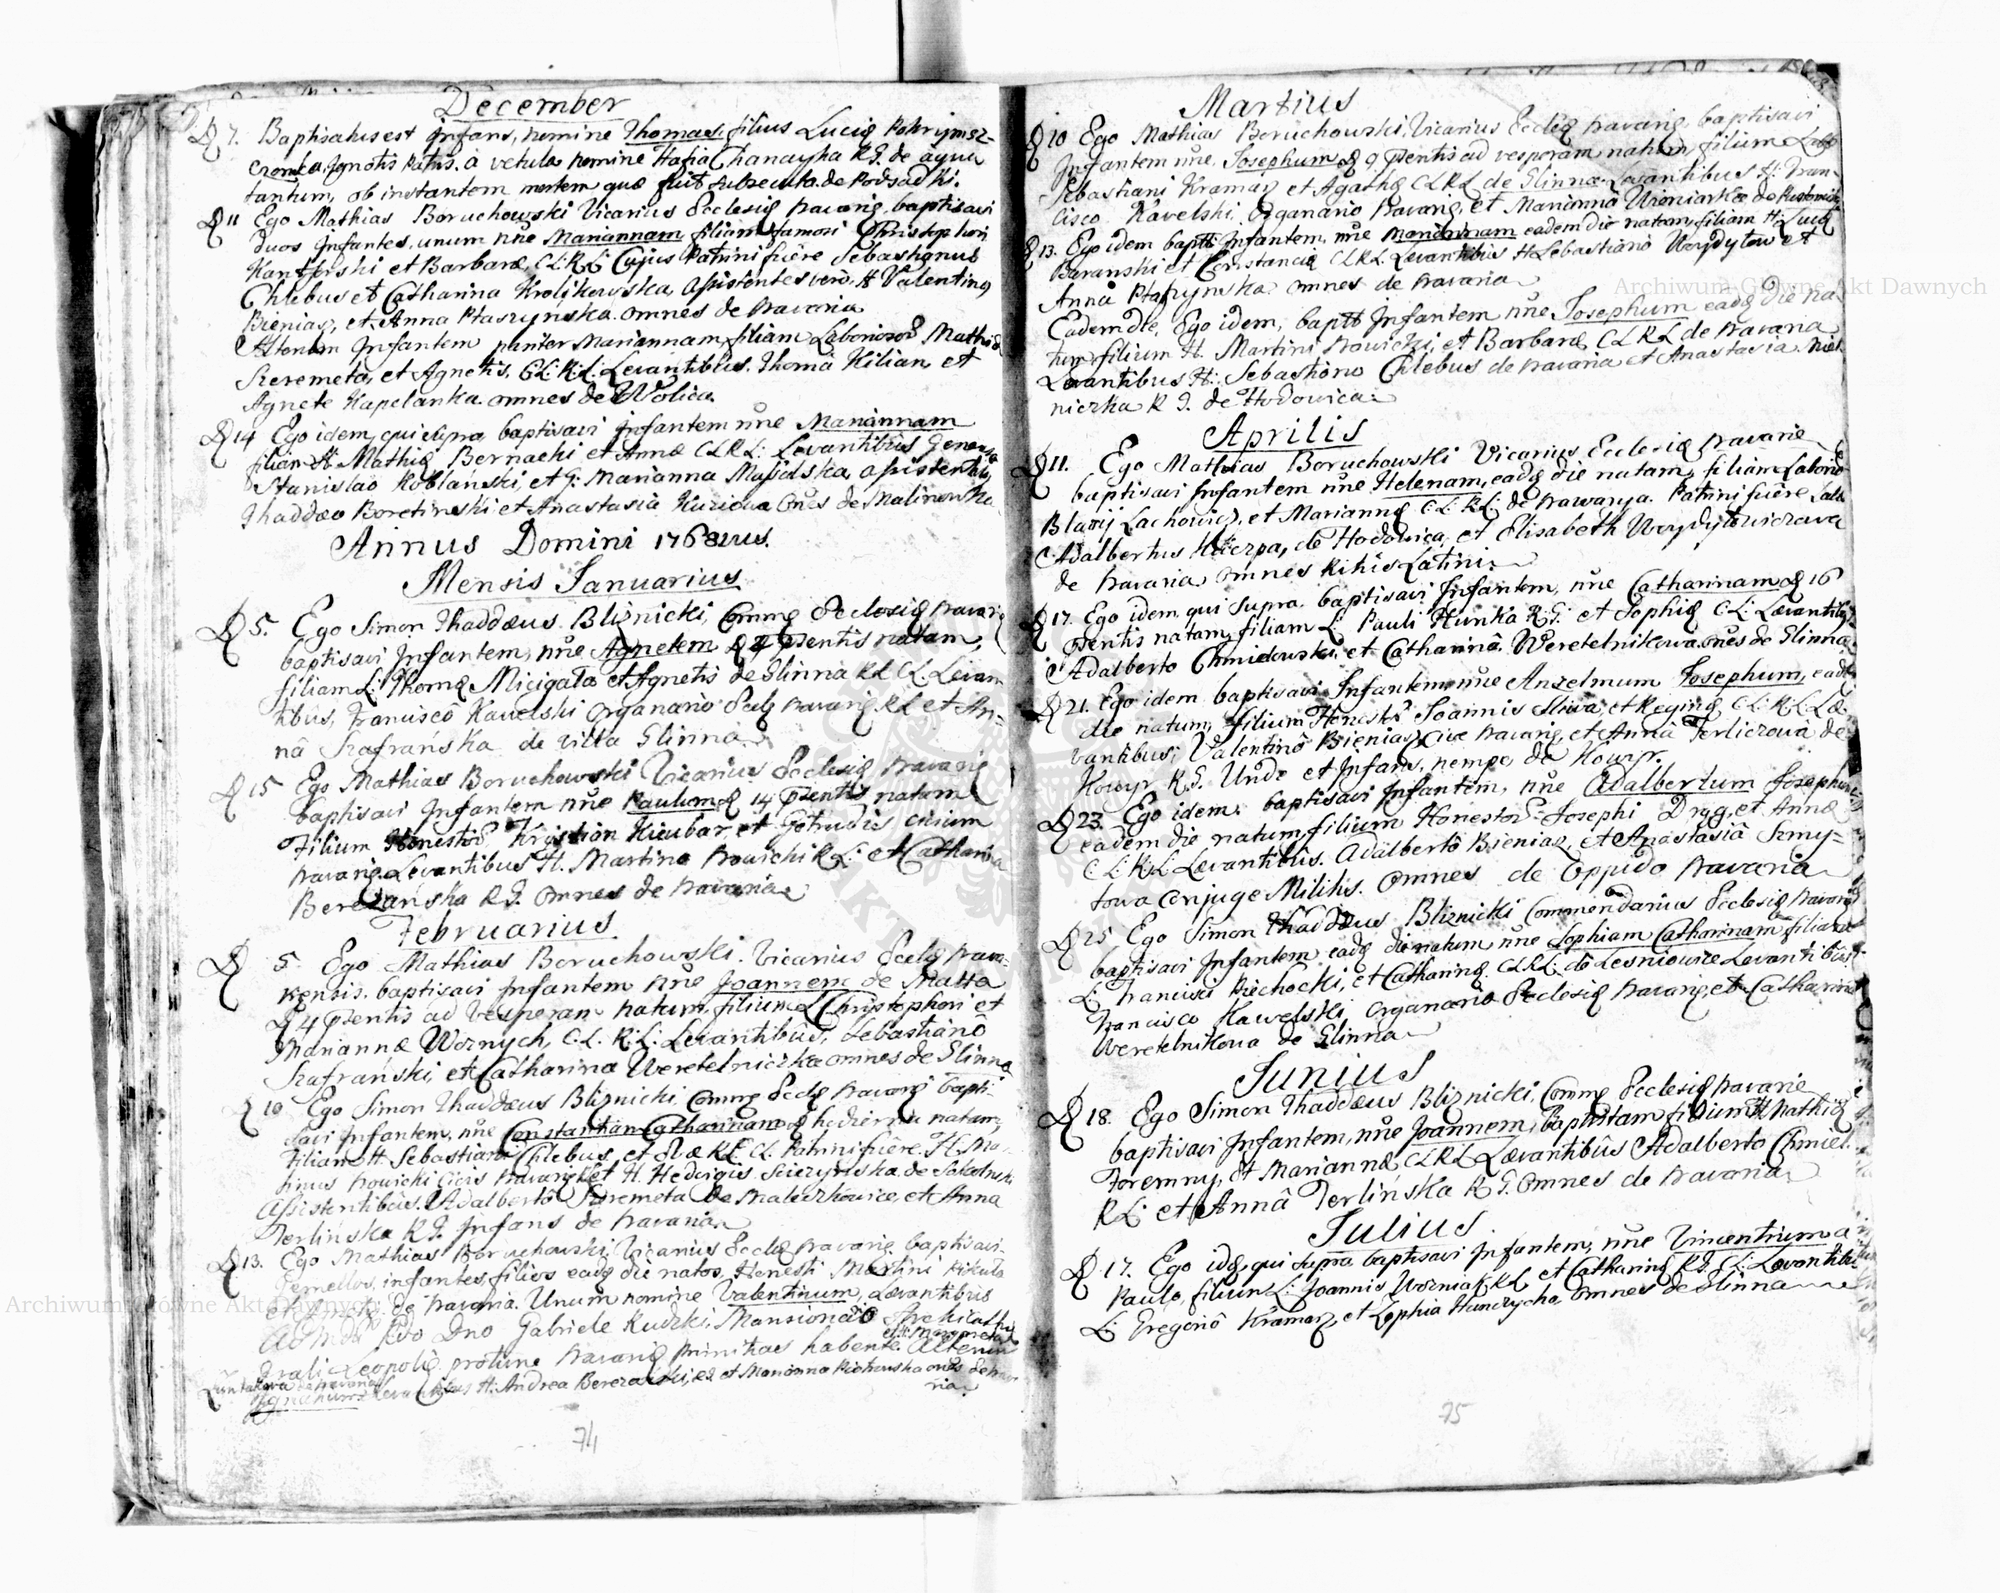 December
D 7. Baptisatus est Infans, nomine Thomas, filius Luciæ Pokrzywsz-
czonica, Ignotis Patris. a vetula nomine Hasia Chanayka R.G. de aqua
tantum, ob instantem mortem quæ fuit subsecuta. de Podsadki.
D 11 Ego Mathias Boruchowski Vicarius Ecclesiæ Navariæ, baptisavi
duos Infantes, unum nne Mariannam filiam famosi Christophori
et Barbaræ, C.L.R.L. Cujus Patrini fuere Sebastianus
Chlebus et Catharina Krolikowska, Assistentes vero, H Valentinus
Bieniasz, et Anna Ptaszynska. omnes de Navaria
Alteram Infantem pariter Mariannam, filiam Laboriosor Mathiæ
Szeremeta, et Agnetis, C.L.R.L. Levantibus. Thoma Kilian et
Agnete Kapelanka. omnes de Wolica.
D 14 Ego idem, qui supra, baptisavi Infantem nne Mariannam
filiam H Mathiæ Bernacki et Annæ C.L.R.L. Levantibus Generoso
Stanislao Koblanski, et G. Marianna Masialska, Assistentibus
Thaddæo Boretinski et Anastasia Kuriova Ones de Malinowka
Annus Domini 1768vus.
Mensis Januarius
D 5. Ego Simon Thaddæus Bliznicki, Comms Ecclesiæ Navariæ
baptisavi Infantem, nne Agnetem D 4 Psentis natam,
filiam L: Thomæ Micigala et Agnetis de Glinna R.L. C.L. Levan-
tibus, Francisco Kawelski Organario Eccle Navariæ R.L. et An-
nâ Szafrańska de villa Glinna.
D 15 Ego Mathias Boruchowski Vicarius Ecclesiæ Navariæ
baptisavi Infantem nne Paulum D 14 Psentis natum
Filium Honestor Krystian Kicubar, et Gertrudis civium
Navariæ. Levantibus H. Martino Nowicki R.L. et Catharina
Berezańska R.G. omnes de Navaria
Februarius
D 5. Ego Mathias Boruchowski. Vicarius Eccle Nava-
riensis. baptisavi Infantem nne Joannem de Matta
D 4 Psentis ad Vesperam natum, filium L Christophori et
Mariannæ Woznych, C.L. R.L. Levantibus, Sebastianô
Szafrański, et Catharina Weretelniczka omnes de Glinna
D 10 Ego Simon Thaddæus Bliznicki Comms Eccle Navariæ bapti-
savi Infantem, nne Constantiam Catharinam D hodierna natam
Filiam H Sebastiani Chlebus, et Evæ R.L. C.L. Patrini fuere. H. Mar-
tinus Nowicki Civis Navariæ et H. Hedvigis Sciczynska de Sokolniki
Assistentibus. Adalberto Szeremeta de Maliczkowice, et Anna
Terlińska R.G. Infans de Navaria
D 13. Ego Mathias Boruchowski Vicarius Eccle Navariæ baptisavi
Gemellos, infantes, filios eade die natos, Honesti Martini Pikuła
et de Navaria. Unum nomine Valentinum, Levantibus
Rdo Dno Gabriele Rudzki, Mansionario Archicathe-
et H. Margareta
drali Leopoli protunc Navariæ primitias habente. Alterum
Levantibus H: Andrea Berezański, et Marianna Piotrowska ones de Nava-
ria
74
Martius
D 10 Ego Mathias Boruchowski, Vicarius Eccleæ Navariæ, baptisavi
Infantem nne, Josephum D 9 Psentis ad vesperam natum, filium Labo
Sebastiani Kramarz et Agathæ C.L.R.L. de Glinna Levantibus H: Fran-
cisco Kawelski Organario Navariæ, et Marianna
D 13. Ego idem baptt Infantem, nne Mariannam eadem die natam, filiam H: Lucæ
Baranski et Constanciæ C.L.R.L. Levantibus H Sebastiano Woydyłow et
Anna Ptaszynska omnes de Navaria
Eadem die, Ego idem, baptt Infantem nne Josephum eade die na-
tum, filium H. Martini Nowicki, et Barbaræ, C.L.R.L. de Navaria
Levantibus H: Sebastiano Chlebus de Navaria et Anastasia
niczka R.G. de Hodowica
Aprilis
D 11. Ego Mathias Boruchowski Vicarius Ecclesiæ Navariæ
baptisavi Infantem nne Helenam, eade die natam, filiam Laborio
Blasij Lachowicz, et Mariannæ C.L. R.L. de Nawarya. Patrini fuere Lab
Adalbertus Kuczpa, de Hodowica, et Elisabeth Woydyłowiczowa
de Navaria omnes Ritus Latini
D 17. Ego idem qui supra. baptisavi Infantem, nne Catharinam D 16
Psentis natam, filiam L: Pauli Hunka R.G. et Sophiæ C.L. Levantibus
Adalberto Chmielowski, et Catharinâ Weretelnikowa, ones de Glinna
D 21. Ego idem baptisavi Infantem nne Anzelmum Josephum, eade
die natum, filium Honesti Joannis Sliwa, et Reginæ, C.L. R.L. Le-
vantibus, Valentinô Bieniasz Cive Navariæ, et Annâ Terliczowa de
Kowyr R.G. Unde et Infans, nempe de Kowyr.
D 23 Ego idem baptisavi Infantem, nne Adalbertum Josephum
eadem die natum, filium Honestor Josephi Dryg, et Annæ
C.L. R.L. Levantibus. Adalbertô Bieniasz, et Anastasiâ Szmy-
towa conjuge Militis. omnes de Oppido Navaria
D 25 Ego Simon Thaddæus Bliznicki Commendarius Ecclesiæ Navariæ
baptisavi Infantem eade die natam nne Sophiam Catharinam filiam
L: Francisci Piechocki, et Catharinæ C.L.R.L. de Lesniowice Levantibus
Francisco Kawelski Organario Ecclesiæ Navariæ, et Catharina
Weretelnikowa de Glinna
Junius
D 18. Ego Simon Thaddæus Bliznicki, Comms Ecclesiæ Navariæ
baptisavi Infantem, nne Joannem, Baptistam filium H Mathiæ
Foremny, et Mariannæ C.L.R.L. Levantibus Adalberto Chmiel
R.L. et Annâ Terlińska R.G. omnes de Navaria
Julius.
D 17. Ego ide, qui supra baptisavi Infantem, nne Vincentium a
Paulo, filium L: Joannis Woźniak R.L. et Catharinæ R.G. C.L. Levantibus
L: Gregoriô Kramarz, et Sophia Hunczycha omnes de Glinna
75
Archiwum Główne Akt Dawnych
Archiwum Główne Akt Dawnych